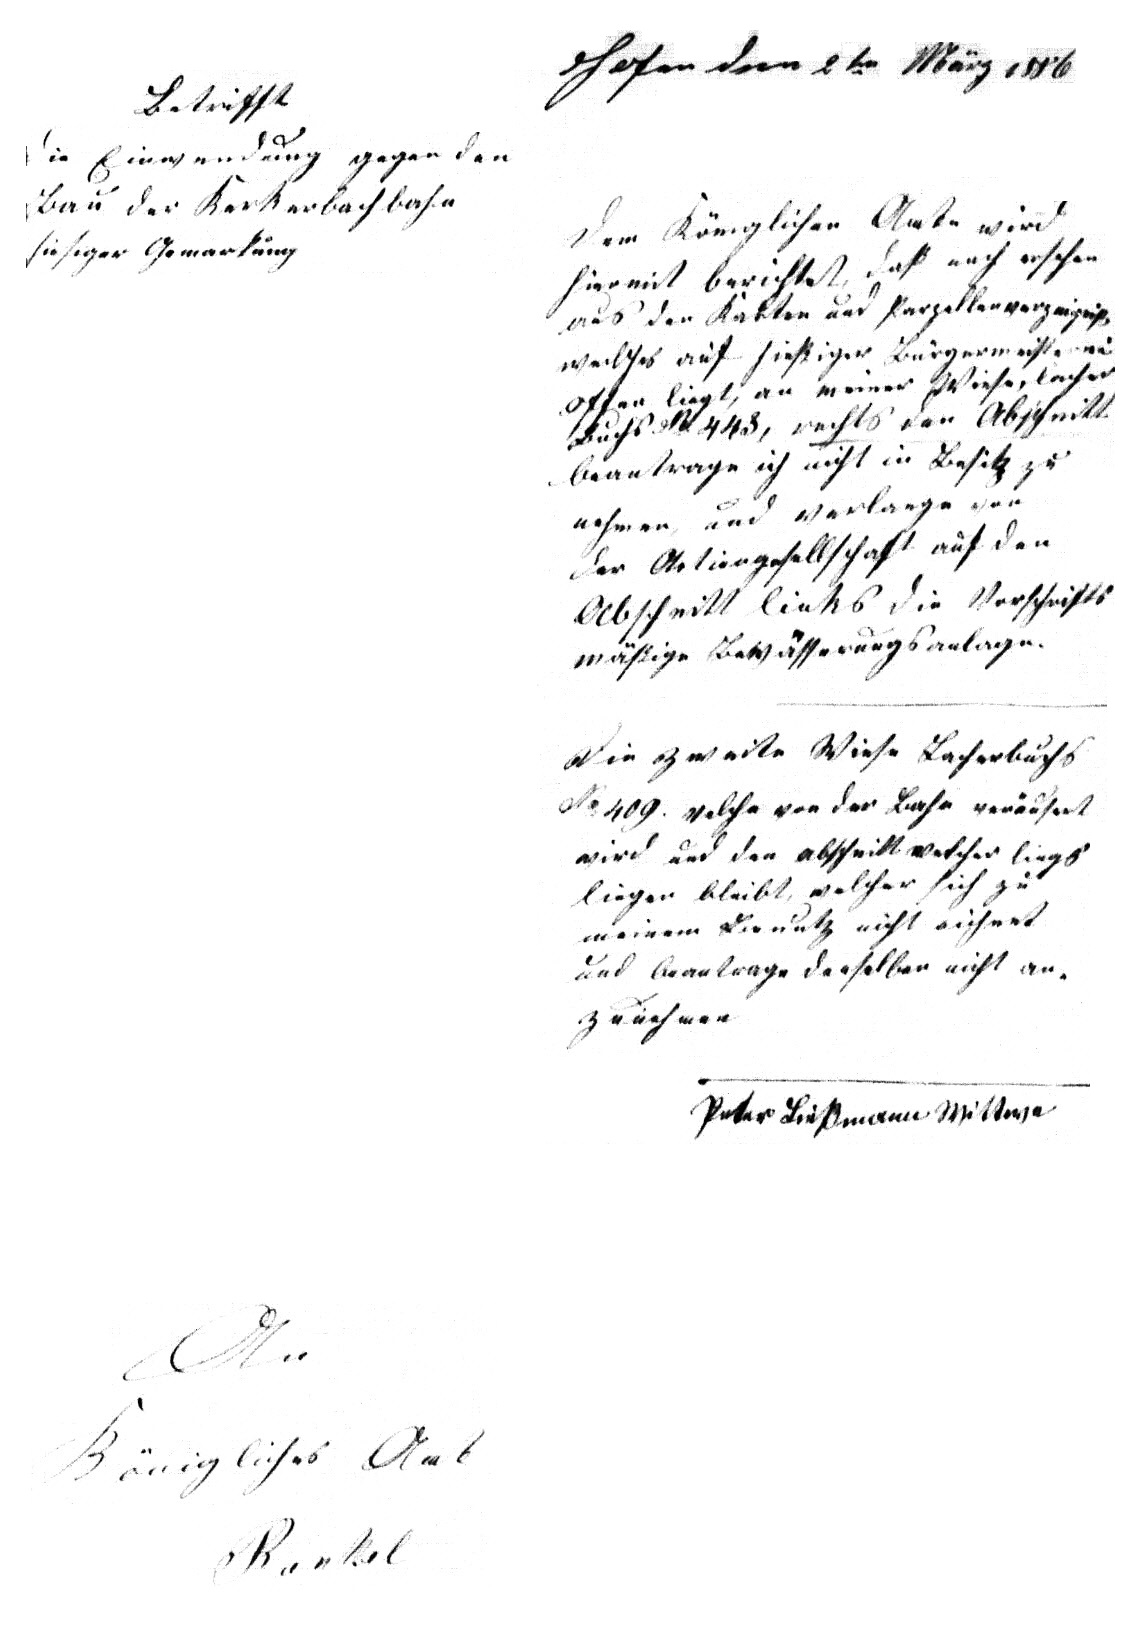 Hofen den 2ten März 1886
Betrifft
die Einwendung gegen den
Bau der Kerkerbachbahn
hiesiger Gemarkung
Dem Königlichen Amte wird
hiermit berichtet, daß nach ersehen
aus den Karten und Parzellenverzeigniß,
welches auf hießiger Bürgermeisterei
offen liegt, an meiner Wiese, Lacher
Buchs No 443, rechts den Abschnitt
beantrage ich nicht in Besitz zu
nehmen, und verlange von
der Actiengesellschaft auf den
Abschnitt links die Vorschrifts
mäßige Bewässerungsanlage.
Die zweite Wiese Lacherbuchs
No 409. welche von der Bahn veräusert
wird und den abschnitt welcher liegs
liegen bleibt, welcher sich zu
meinem nicht eichnet
und beantrage denselben nicht an-
zunehmen
Peter Ließmann Wittwe
An
Königliches Amt
Runkel